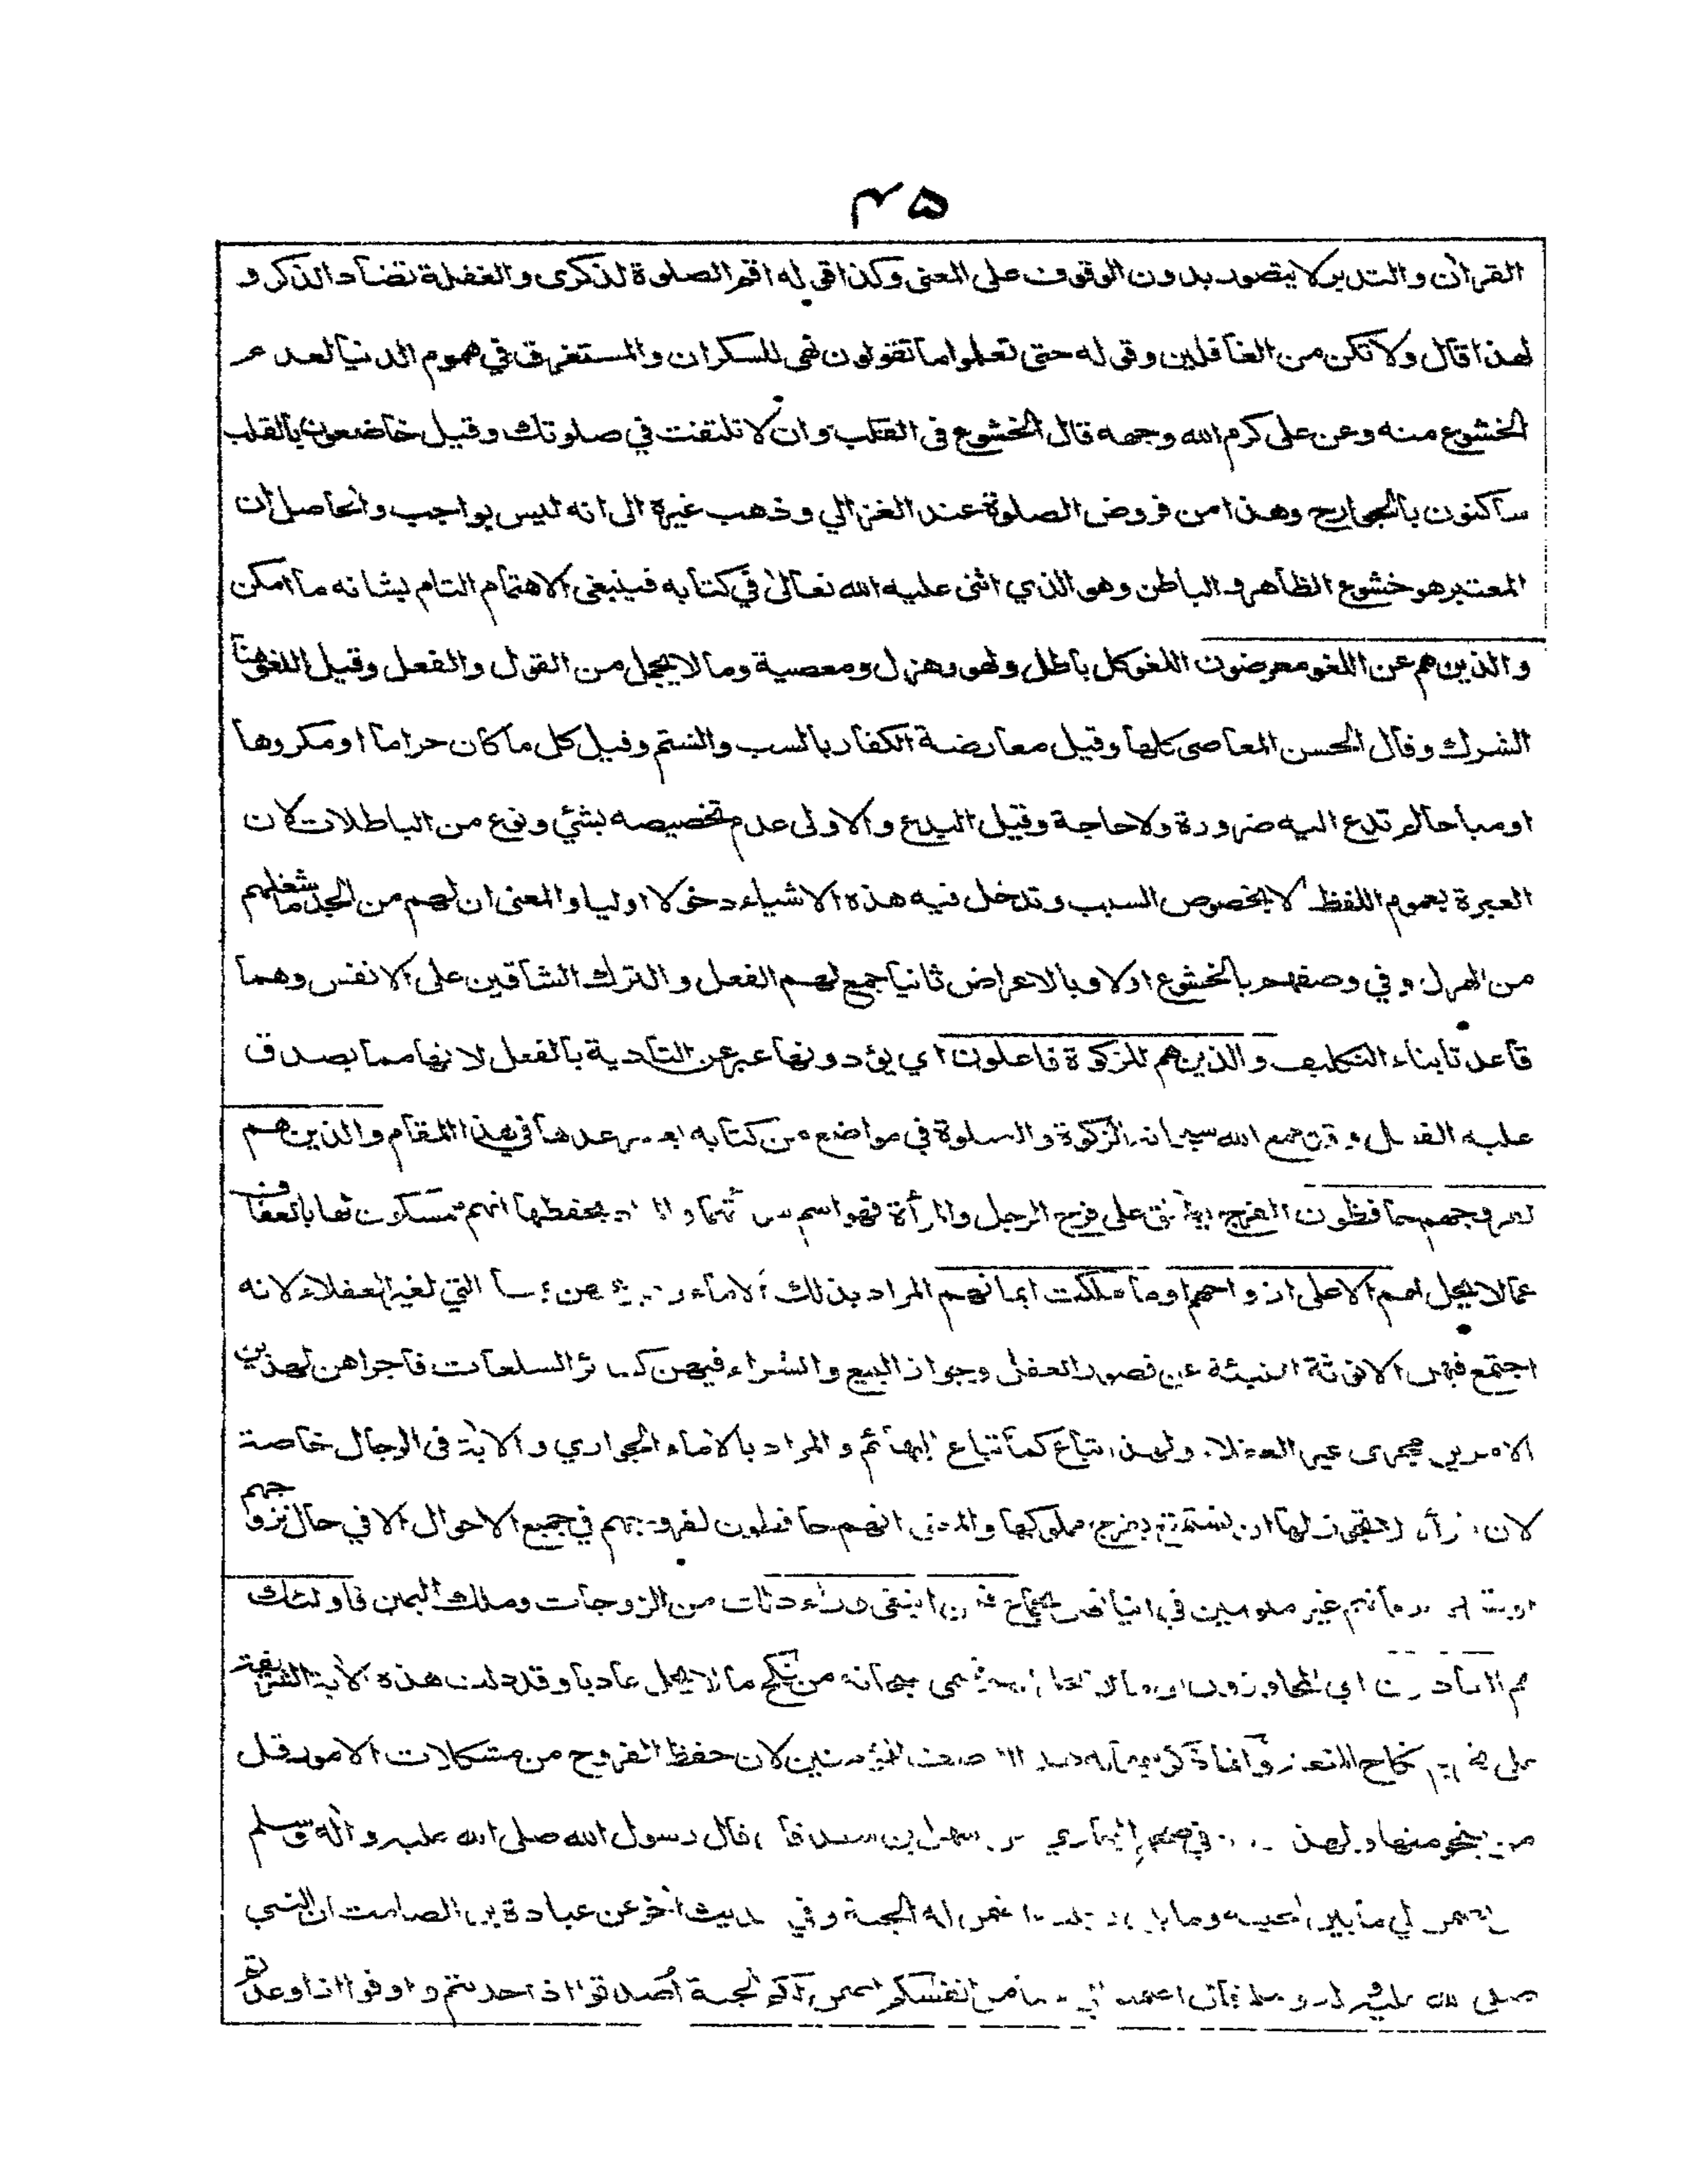 ٤٥
القرآن والتدبر لا يتصور بدون الوقوف على المعنى وكذا قوله اقم الصلوة لذكرى والغفلة تضاد الذكر و
لهذا قال ولا تكن من الغافلين وقوله حتى تعلموا ما تقولون نهى للسكران والمستغرق في هموم الدنيا لعدم
الخشوع منه وعن على كرم الله وجهه قال الخشوع فى القلب وان لا تلتفت في صلوتك وقيل خاضعون بالقلب
ساكنون بالجوارح وهذا من فروض الصلوة عند الغزالي وذهب غيره الى انه ليس بواجب والحاصل ان
المعتبر هو خشوع الظاهر والباطن وهو الذي اثنى عليه الله تعالىٰ في كتابه فينبغى الاهتمام التام بشانه ما امكن
والذين هم عن اللغو معرضون اللغو كل باطل ولهو وهزل ومعصية وما لا يجمل من القول والفعل وقيل اللغو هنا
الشرك وقال الحسن المعاصى كلها وقيل معارضة الكفار بالسب والشتم وقيل كل ما كان حراما او مكروها
او مباحا لم تدع اليه ضرورة ولا حاجة وقيل البدع والاولى عدم تخصيصه بشئي ونوع من الباطلات لان
العبرة بعموم اللفظ لا بخصوص السبب وتدخل فيه هذه الاشياء دخولا اوليا والمعنى ان لهم من الجد ما شغلهم
من الهزل وفي وصفهم بالخشوع اولا وبالاعراض ثانيا جمع لهم الفعل والترك الشاقين على الانفس وهما
قاعدتا بناء التكليف والذين هم للزكوة فاعلون اي يؤدونها عبر عن التادية بالفعل لانها مما يصدق
عليه الفعل وقد جمع الله سبحانه الزكوة والصلوة في مواضع من كتابه عدها في هذا المقام والذين هم
لفروجهم حافظون الفرج يطلق على فرج الرجل والمرأة فهو اسم بحفظها انهم ممسكون لها بالعفاف
عما لا يحل لهم الا على ازواجهم او ما ملكت ايمانهم المراد بذلك الاماء التي لغير العقلاء لانه
اجتمع فيهن الانوثة المنبئة عن قصور العقل وجواز البيع والشراء فيهن كسائر السلعات فاجراهن لهذين
الامرين مجرى غير العقلاء ولهذا تباع كما تباع البهائم والمراد بالاماء الجواري والاية فى الرجال خاصة
لان المرأة لا يجوز لها ان تستمتع بفرج مملوكها والمعنى انهم حافظون لفروجهم في جميع الاحوال الا في حال تزوجهم
فانهم غير ملومين في اتيانهن بجماع فمن ابتغى وراء ذلك من الزوجات وملك اليمين فاولئك
هم العادون اي المجاوزون سبحانه من نكح ما لا يحل عاديا وقد دلت هذه الاية الشريفة
على نكاح المتعة وانما ذكر المؤمنين لان حفظ الفروج من مشكلات الامور قل
من ينجو منها ولهذا في صحيح البخاري سهل بن سعد قال قال رسول الله صلى الله عليه وآله وسلم
من يضمن لي ما بين لحييه وما بين اضمن له الجنة وفي حديث آخر عن عبادة بن الصامت ان النبي
صلى الله عليه وآله وسلم قال من انفسكم اضمن لكم الجنة اصدقوا اذا حدثتم واوفوا اذا وعدتم